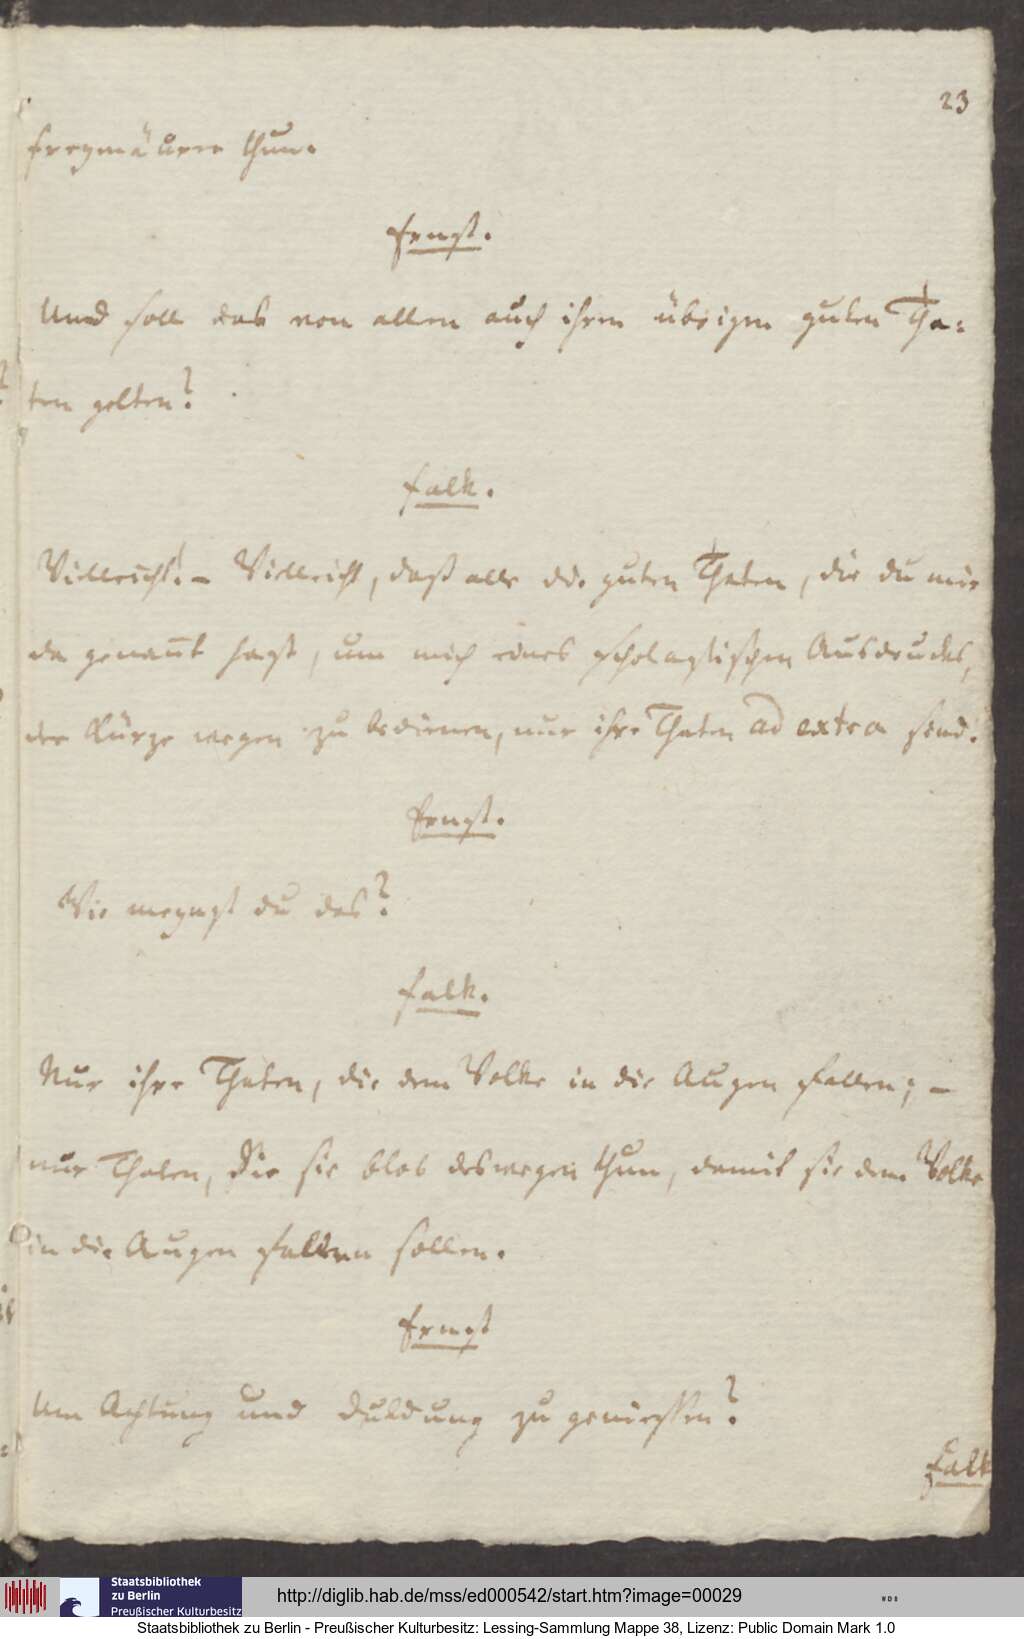 23
Freymäurer thun.
Ernst.
Und soll das von allen auch ihren übrigen guten Tha-
ten gelten?
Falk.
Vielleicht! – Vielleicht, daß alle die guten Thaten, die du mir
da genannt hast, um mich eines scholastischen Ausdruckes,
der Kürze wegen zu bedienen, nur ihre Thaten ad extra sind.
Ernst.
Wie meynst du das?
Falk.
Nur ihre Thaten, die dem Volke in die Augen fallen; –
nur Thaten, die sie blos deswegen thun, damit sie dem Volke
in die Augen fallen sollen.
Ernst
Um Achtung und Duldung zu geniessen?
Falk
Staatsbibliothek
zu Berlin
Preußischer Kulturbesitz
http://diglib.hab.de/mss/ed000542/start.htm?image=00029
Staatsbibliothek zu Berlin - Preußischer Kulturbesitz: Lessing-Sammlung Mappe 38, Lizenz: Public Domain Mark 1.0